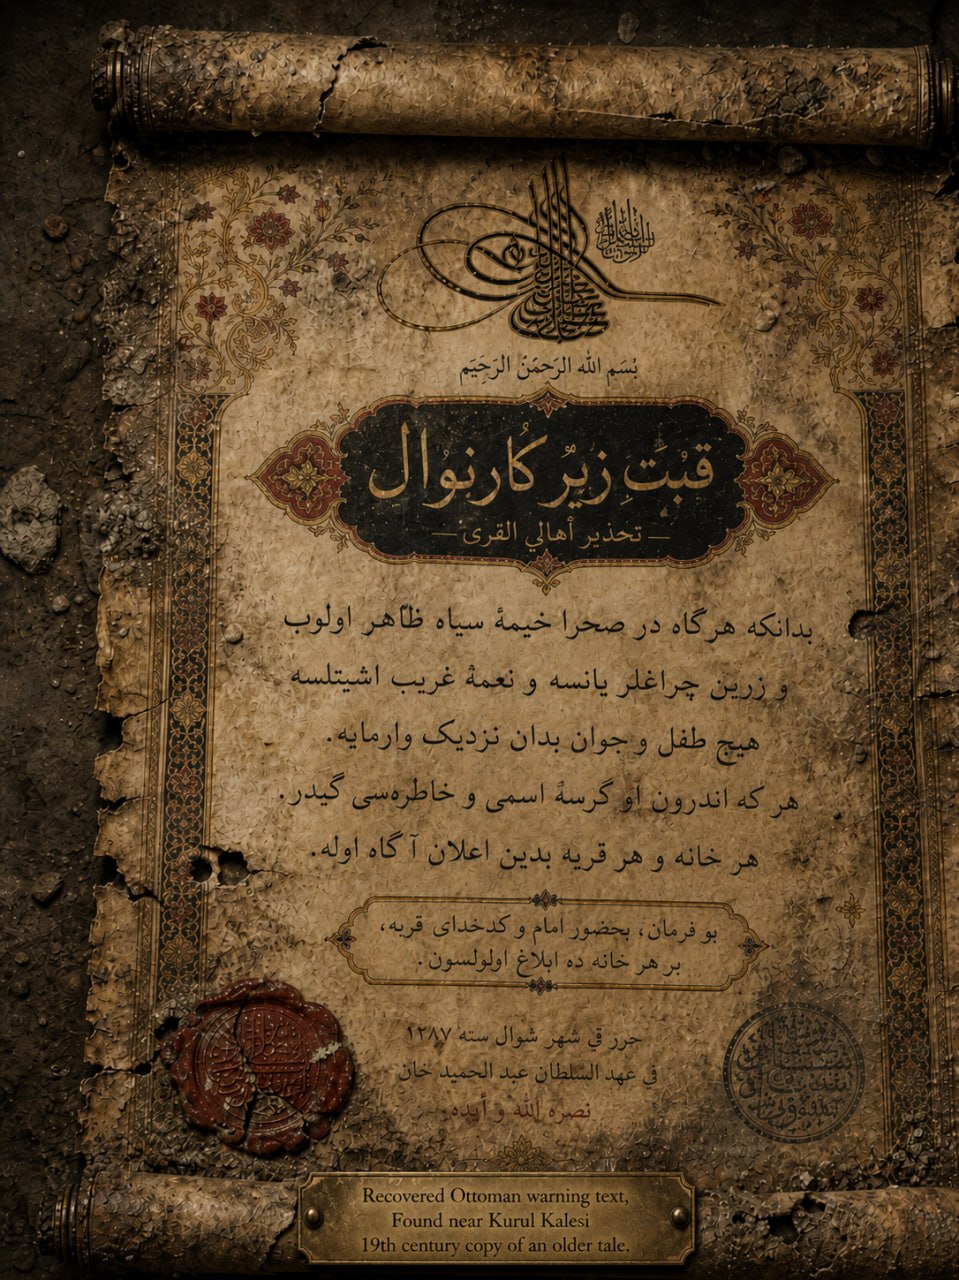 بُسَم الله الرَحمٰنُ الرَحَيَم
قبُتَِ زيرُ كُارنوُال
— تحذير أهالي القرى —
بدانكه هرگاه در صحرا خيمهٔ سياه ظاهر اولوب
و زرين چراغلر يانسه و نعمهٔ غريب اشيتلسه
هيچ طفل و جوان بدان نزديک وارمايه.
هر كه اندرون او گرسهٔ اسمى و خاطره‌سى گيدر.
هر خانه و هر قريه بدين اعلان آگاه اوله.
بو فرمان، بحضور امام و كدخداى قريه،
بر هر خانه ده ابلاغ اولولسون.
حرر في شهر شوال سنه ١٢٨٧
في عهد السلطان عبد الحميد خان
نصره الله و أيده.
Recovered Ottoman warning text,
Found near Kurul Kalesi
19th century copy of an older tale.